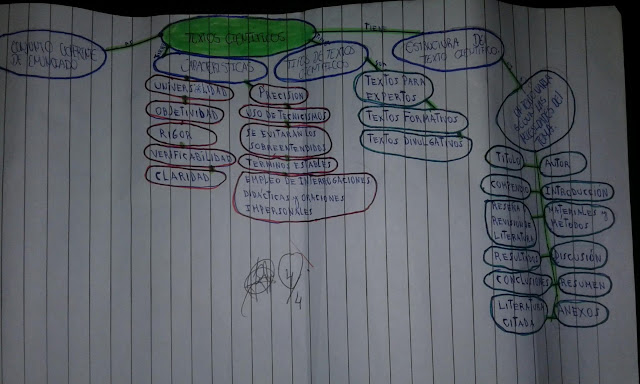 TEXTOS CIENTIFICOS
TIENE
ES
CONJUNTO COHERENTE
DE ENUNCIADO
CARACTERISTICAS
TIPOS DE TEXTOS
CIENTIFICOS
ESTRUCTURA DEL
TEXTO CIENTIFICO
UNIVERSALIDAD
OBJETIVIDAD
RIGOR
VERIFICABILIDAD
CLARIDAD
PRECISION
USO DE TECNICISMOS
SE EVITARAN LOS
SOBREENTENDIDOS
TERMINOS ESTABLES
EMPLEO DE INTERROGACIONES
DIDACTICAS Y ORACIONES
IMPERSONALES
TEXTOS PARA
EXPERTOS
TEXTOS FORMATIVOS
TEXTOS DIVULGATIVOS
TITULO
AUTOR
COMPENDIO
INTRODUCCION
RESEÑA
REVISION DE
LITERATURA
MATERIALES Y
METODOS
RESULTADOS
DISCUSIÓN
CONCLUSIONES
RESUMEN
LITERATURA
CITADA
ANEXOS
4/4